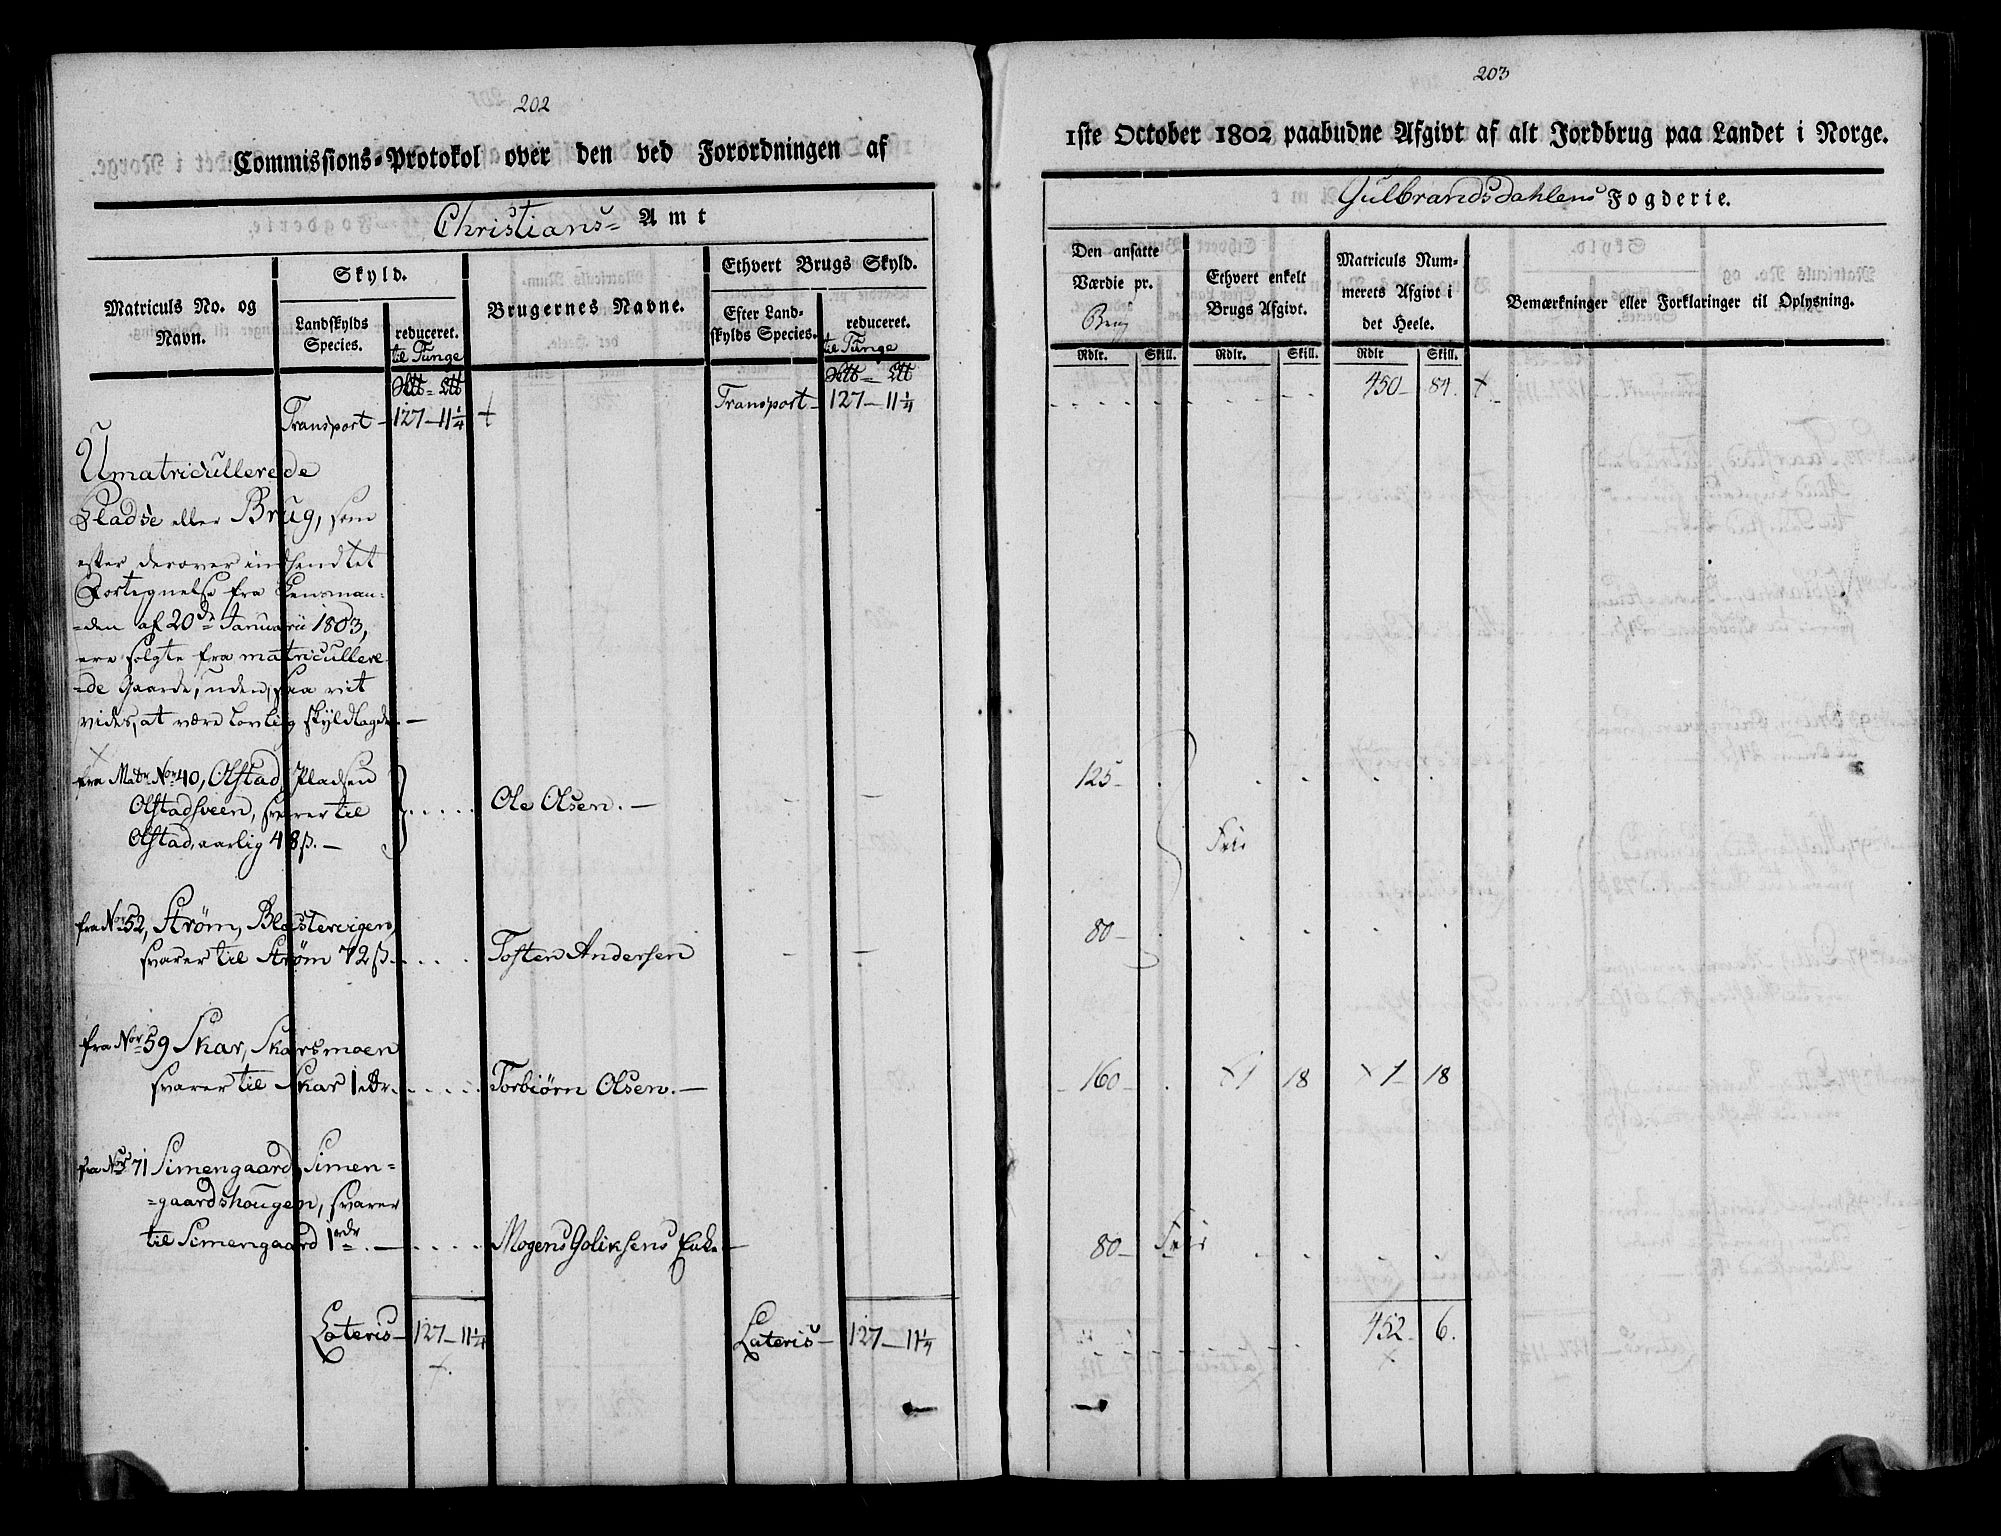 202
Commissions-Protokol over den ved Forordningen af
Christians- Amt
Matriculs No. og
Navn.
Skyld.
Landskylds
Species.
reduceret.
til Tunge
Brugernes Navne.
Ethvert Brugs Skyld.
Efter Land-
skylds Species.
reduceret.
til Tunge
Transport - 127 - 11 1/4 +
Transport - 127 - 11 1/4
Umatricullerede
Pladse eller Brug, som
efter derover indsendtet
Fortegnelse fra Lensman-
-den af 20de Januarii 1803,
ere solgte fra matricullere-
-de Gaarde, uden, saa vit
vides, at være lovlig skyldlagde -
fra Matr Nor 40, Olstad, Pladsen
Olstadsveen, svarer til
Olstad, aarlig 48 ß. -
Ole Olsen. -
fra Nor 52, Strøm,
svarer til Strøm 72 ß -
Tosten Andersen
fra Nor 59 Skar, Skarsmoen
svarer til Skar 1 rdr
Torbiørn Olsen. -
fra Nor 71 Simengaard, Simen-
-gaardshougen, svarer
til Simengaard 1 rdr. -
Mogens Goliksens Enke -
Lateris - 127 - 11 1/4
Lateris - 127 - 11 1/4
203
1ste October 1802 paabudne Afgivt af alt Jordbrug paa Landet i Norge.
Gulbrandsdahlens Fogderie.
Den ansatte
Værdie pr.
Brug
Ethvert enkelt
Brugs Afgivt.
Matriculs Num-
merets Afgivt i
det Heele.
Bemærkninger eller Forklaringer til Oplysning.
Rdlr. Skill. Rdlr. Skill. Rdlr Skill.
450 - 84. +
125 -
Frie
80 -
160 - 1 18 1 - 18
80 - Frie
452 - 6.